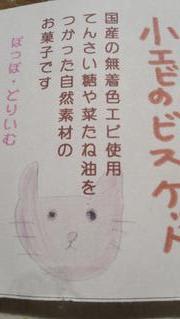 小エビのビスケット
国産の無着色エビ使用
てんさい糖や菜たね油を
つかった自然素材の
お菓子です
ぽっぽ・どりいむ